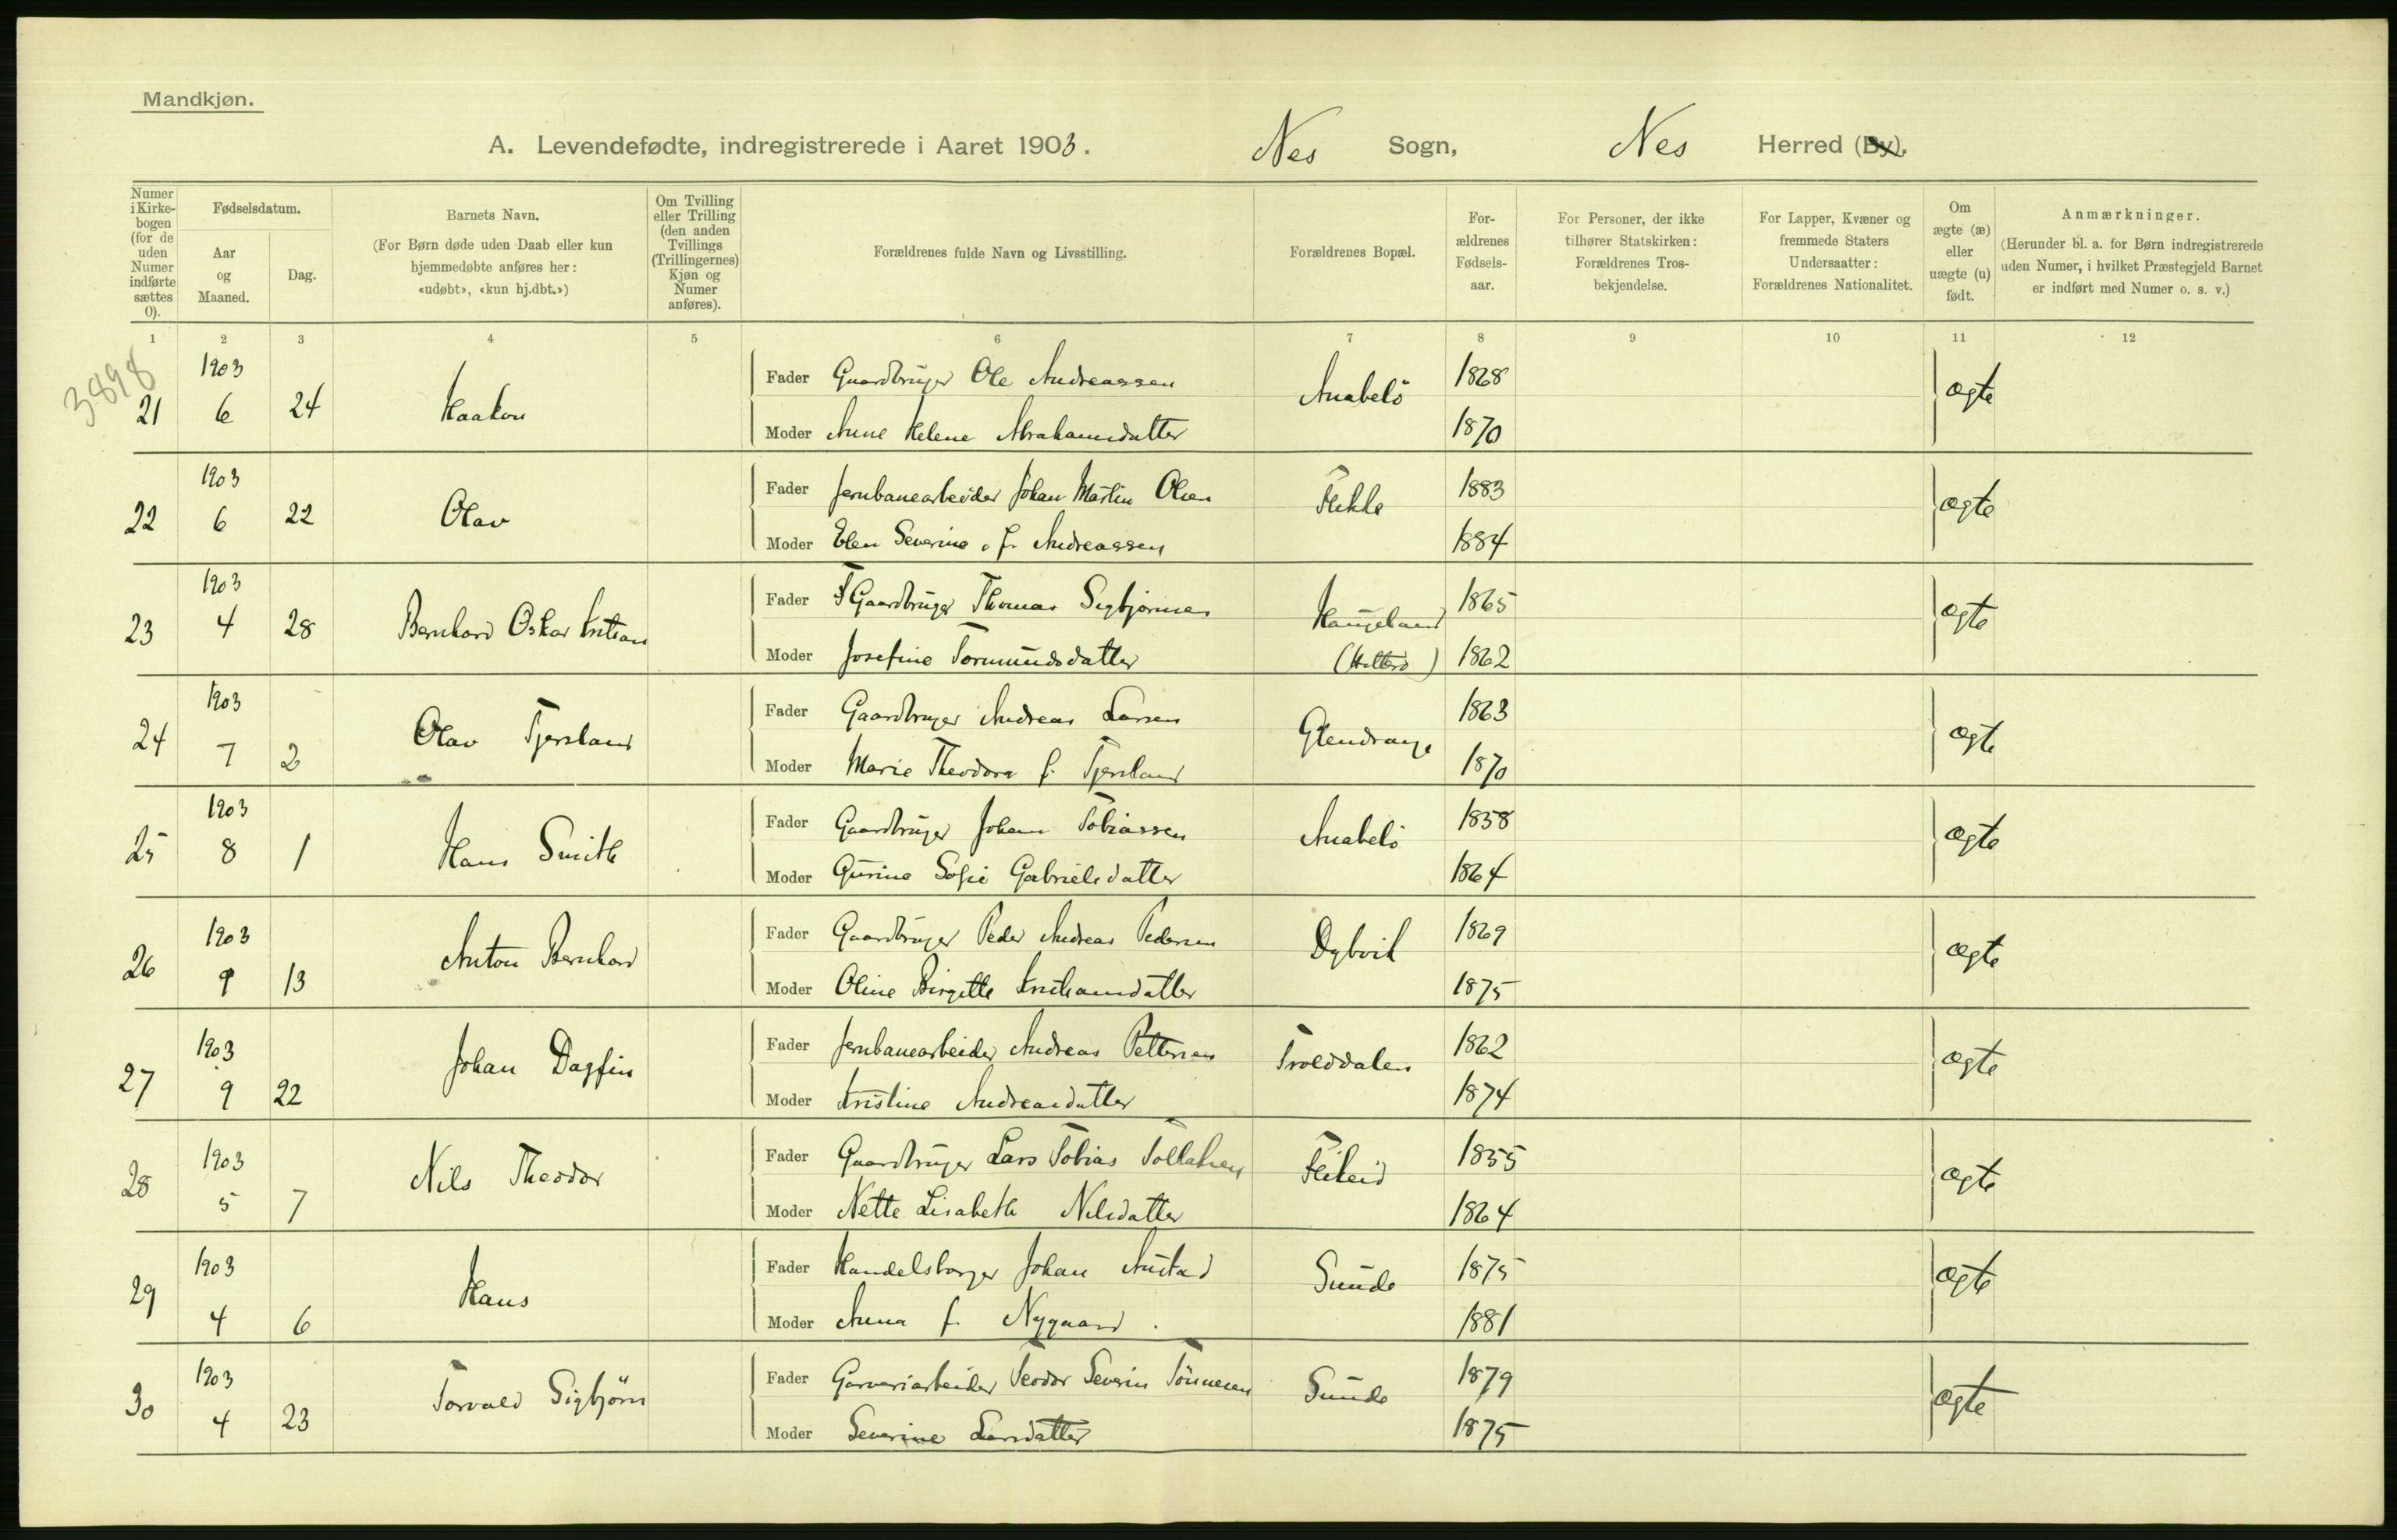 Mandkjøn.
A. Levendefødte, indregistrerede i Aaret 1903. Nes Sogn, Nes Herred (By).
Numer i Kirke-bogen (for de uden Numer indførte sættes 0).
Fødselsdatum.
Aar og Maaned.
Dag.
Barnets Navn.
(For Børn døde uden Daab eller kun hjemmedøbte anføres her: «udøbt», «kun hj.dbt.»)
Om Tvilling eller Trilling (den anden Tvillings (Trillingernes) Kjøn og Numer anføres).
Forældrenes fulde Navn og Livsstilling.
Forældrenes Bopæl.
For-ældrenes Fødsels-aar.
For Personer, der ikke tilhører Statskirken: Forældrenes Tros-bekjendelse.
For Lapper, Kvæner og fremmede Staters Undersaatter: Forældrenes Nationalitet.
Om ægte (æ) eller uægte (u) født.
Anmærkninger.
(Herunder bl. a. for Børn indregistrerede uden Numer, i hvilket Præstegjeld Barnet er indført med Numer o. s. v.)
1 2 3 4 5 6 7 8 9 10 11 12
3898
21 1903 6 24 Haakon Fader Gaardbruger Ole Andreassen Anabelö 1868 ægte
Moder Anne Helene Abrahamsdatter 1870
22 1903 6 22 Olav Fader Jernbanearbeider Johan Martin Olsen Flikke 1883 ægte
Moder Elen Severine f. Andreassen 1884
23 1903 4 28 Bernhard Oskar Kristian Fader Gaardbruger Thomas Sigbjörnsen Haugeland 1865 ægte
Moder Josefine Tormundsdatter (Hitterö) 1862
24 1903 7 2 Olav Tjersland Fader Gaardbruger Andreas Larsen Glendrange 1863 ægte
Moder Marie Theodora f. Tjersland 1870
25 1903 8 1 Hans Smith Fader Gaardbruger Johan Tobiassen Anabelö 1858 ægte
Moder Gurine Sofie Gabrielsdatter 1864
26 1903 9 13 Anton Bernhard Fader Gaardbruger Peder Andreas Pedersen Dybvik 1869 ægte
Moder Oline Birgitte Kristiansdatter 1875
27 1903 9 22 Johan Dagfin Fader Jernbanearbeider Andreas Pettersen Trolddalen 1862 ægte
Moder Kristine Andreasdatter 1874
28 1903 5 7 Nils Theodor Fader Gaardbruger Lars Tobias Tollaksen Flikeid 1855 ægte
Moder Nette Lisabeth Nilsdatter 1864
29 1903 4 6 Hans Fader Handelsborger Johan Austad Sunde 1875 ægte
Moder Anna f. Nygaard. 1881
30 1903 4 23 Torvald Sigbjörn Fader Garveriarbeider Teodor Severin Tönnesen Sunde 1879 ægte
Moder Severine Larsdatter 1875